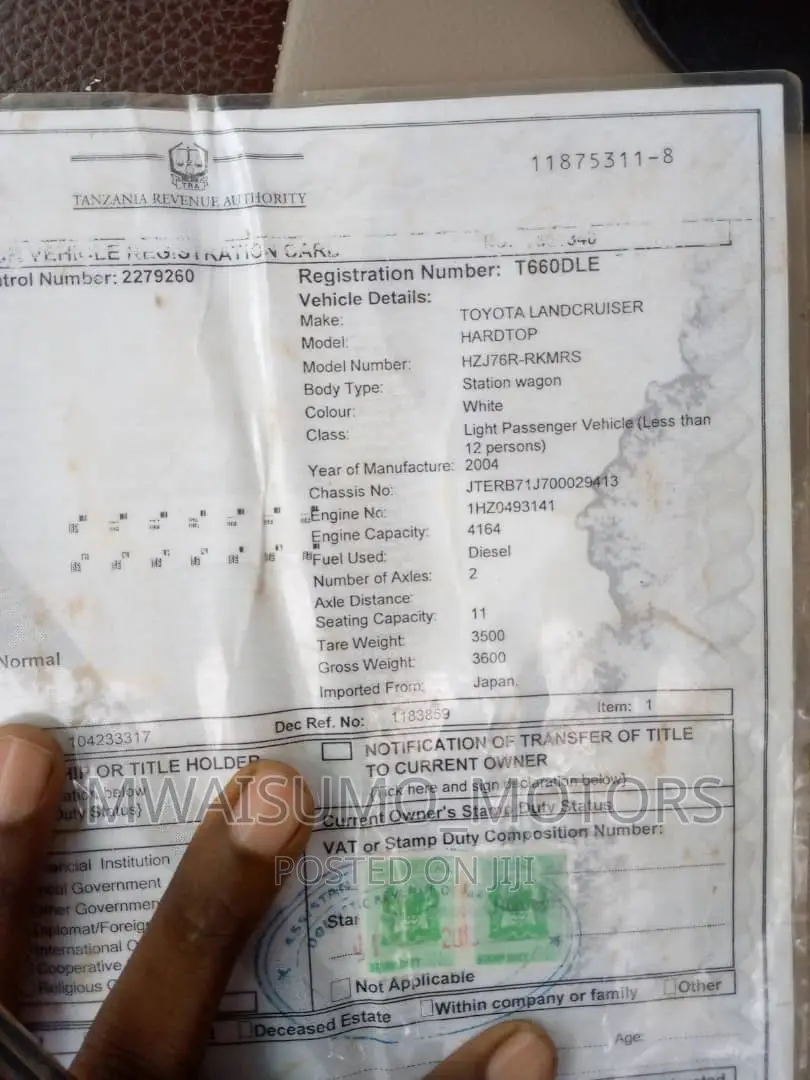 11875311-8
TRA
TANZANIA REVENUE AUTHORITY
VEHICLE REGISTRATION CARD
trol Number: 2279260
Registration Number: T660DLE
Vehicle Details:
Make: TOYOTA LANDCRUISER
Model: HARDTOP
Model Number: HZJ76R-RKMRS
Body Type: Station wagon
Colour: White
Class: Light Passenger Vehicle (Less than
12 persons)
Year of Manufacture: 2004
Chassis No: JTERB71J700029413
Engine No: 1HZ0493141
Engine Capacity: 4164
Fuel Used: Diesel
Number of Axles: 2
Axle Distance:
Seating Capacity: 11
Normal
Tare Weight: 3500
Gross Weight: 3600
Imported From: Japan.
104233317 Dec Ref. No: 1183859 Item: 1
HIP OR TITLE HOLDER
below
Duty Status)
NOTIFICATION OF TRANSFER OF TITLE
TO CURRENT OWNER
(tick here and sign declaration below)
MWAISUMO_MOTORS
POSTED ON JIJI
Current Owner's Stamp Duty Status
VAT or Stamp Duty Composition Number:
ancial Institution
cal Government
ther Governmen
Diplomat/Foreig
International O
Cooperative
Religious
Star
Not Applicable
Deceased Estate Within company or family Other
Age: